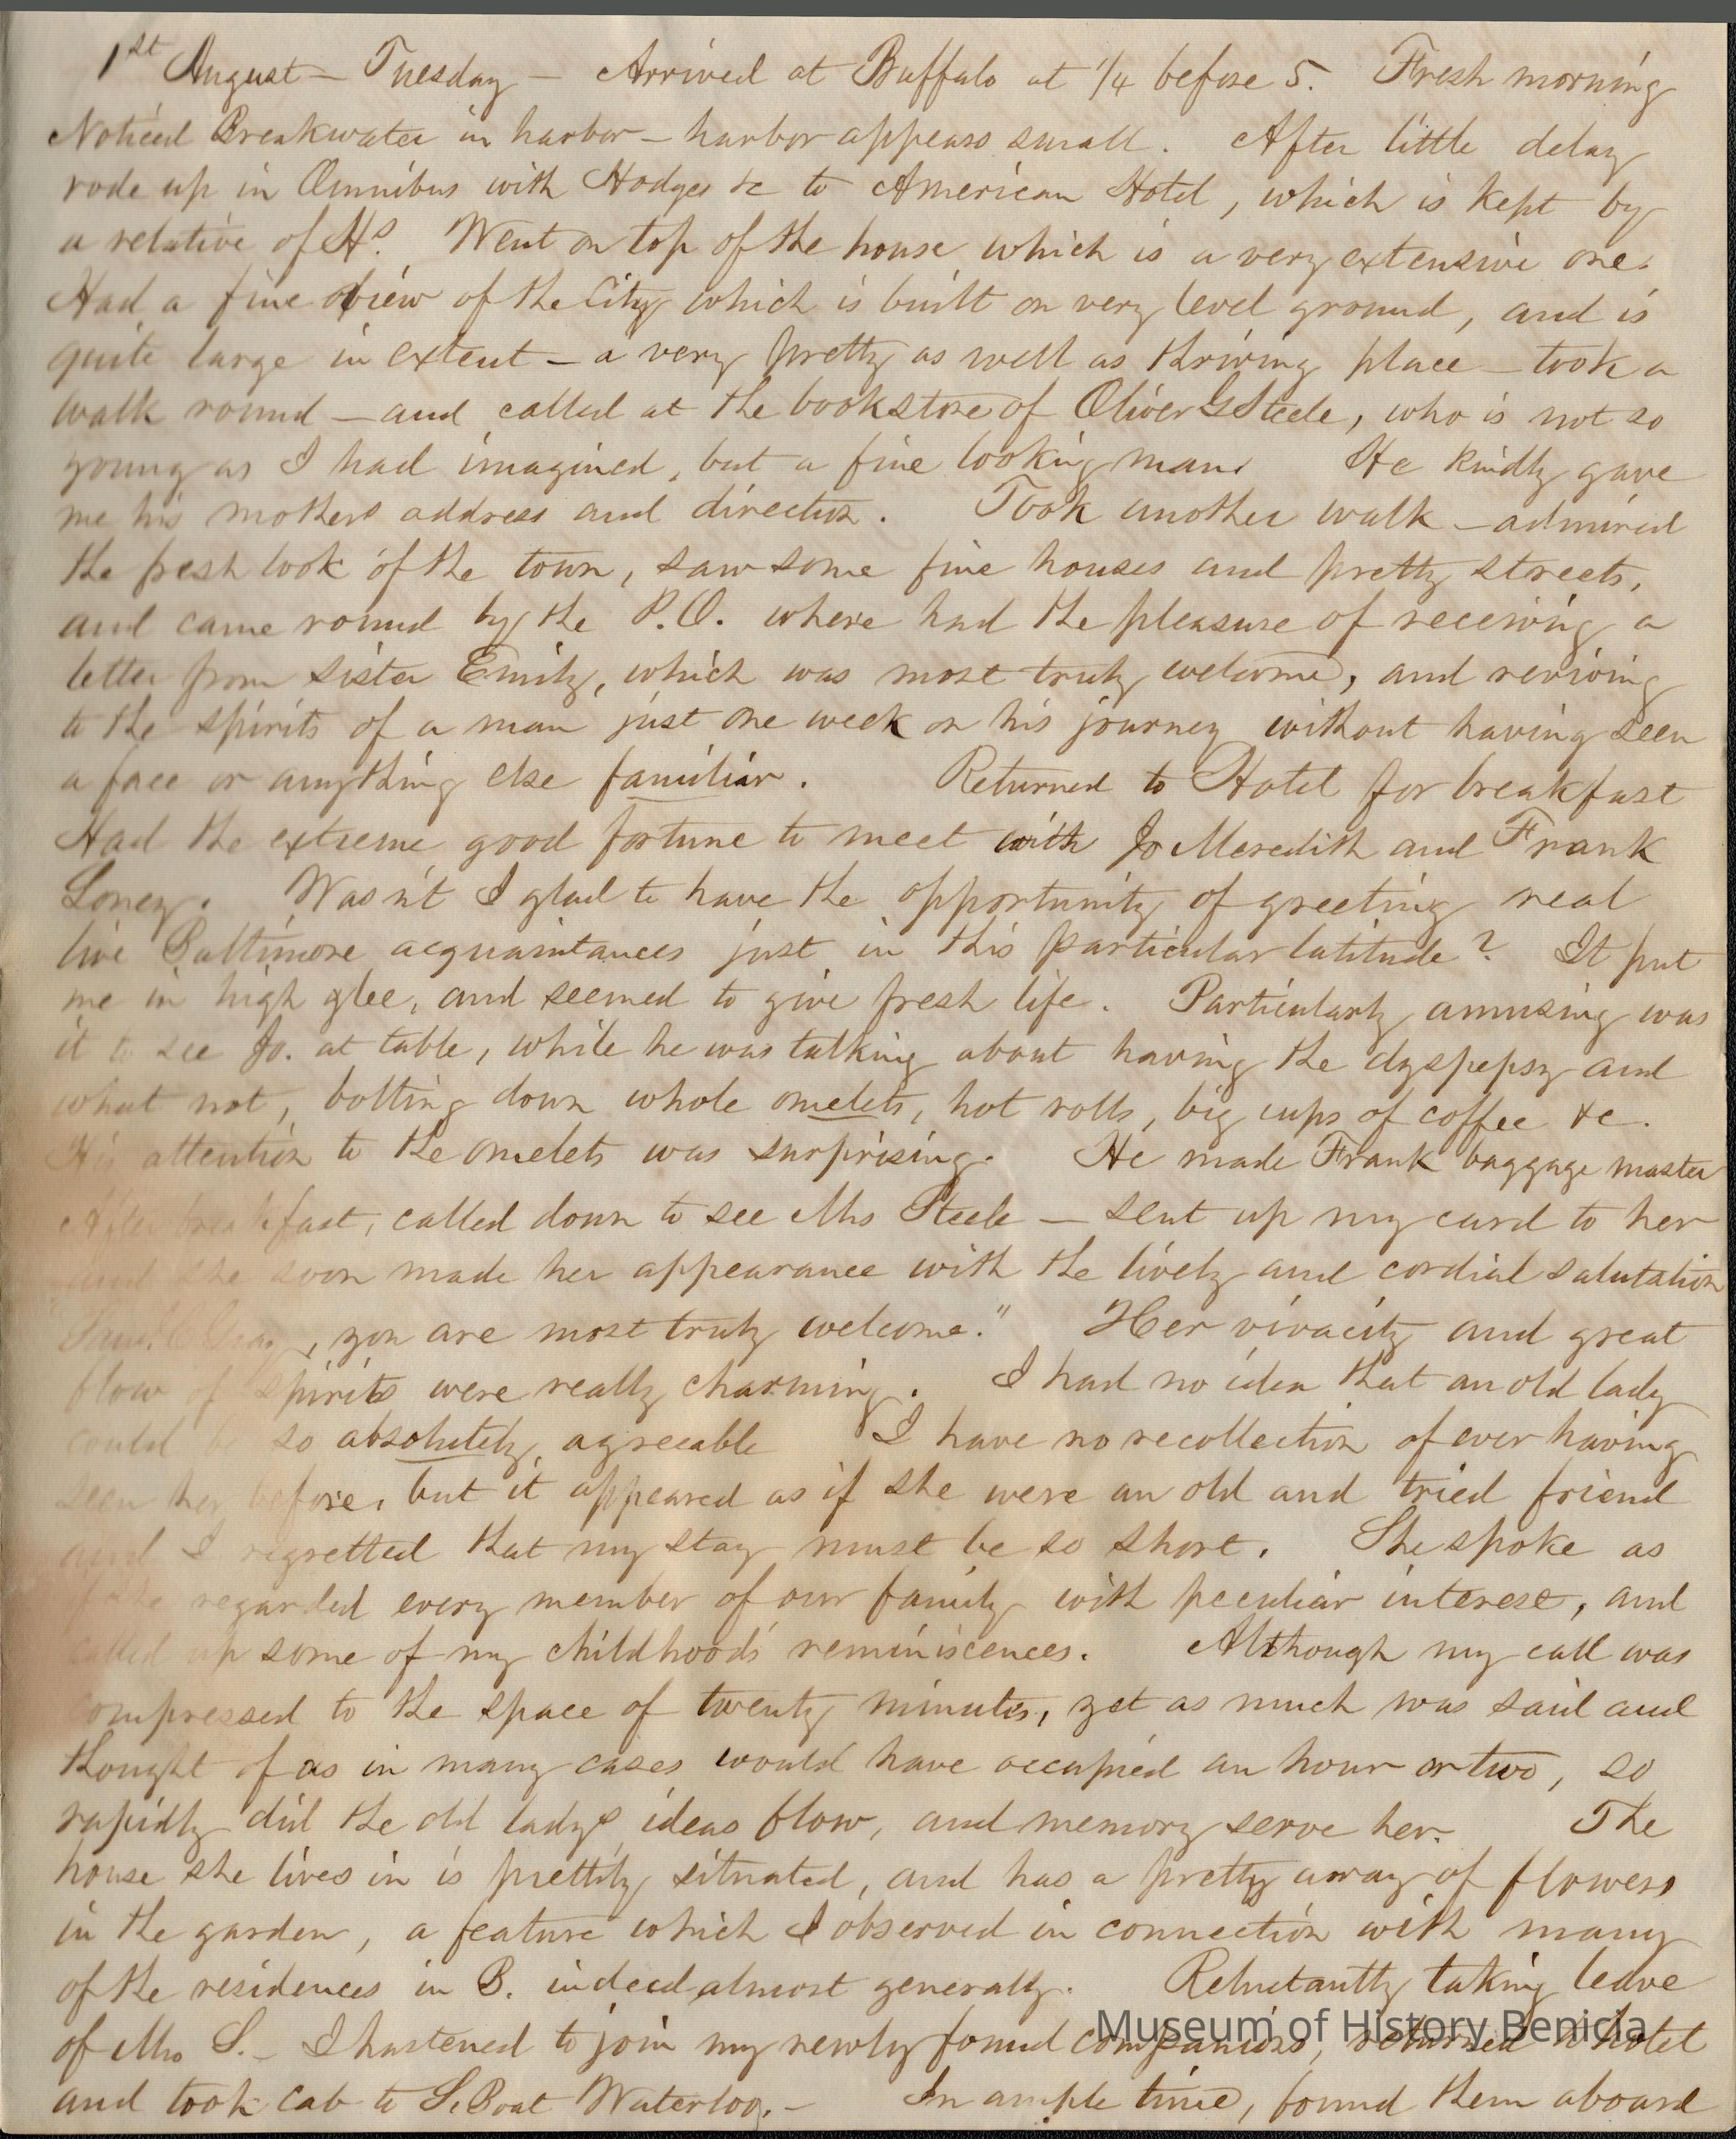 1st August – Tuesday – Arrived at Buffalo at 1/4 before 5. Fresh morning
Noticed Breakwater in harbor – harbor appears small. After little delay
rode up in Omnibus with Hodges &c to American Hotel, which is kept by
a relative of Hs. Went on top of the house which is a very extensive one.
Had a fine view of the City which is built on very level ground, and is
quite large in extent – a very pretty as well as thriving place – took a
walk round – and called at the bookstore of Oliver G Steele, who is not so
young as I had imagined, but a fine looking man. He kindly gave
me his mothers address and direction. Took another walk – admired
the fresh look of the town, saw some fine houses and pretty streets,
and came round by the P.O. where had the pleasure of receiving a
letter from sister Emily, which was most truly welcome, and reviving
to the spirits of a man just one week on his journey without having seen
a face or anything else familiar. Returned to Hotel for breakfast
Had the extreme good fortune to meet with Jo Meredith and Frank
Loney. Wasn't I glad to have the opportunity of greeting real
live Baltimore acquaintances just in this particular latitude? It put
me in high glee, and seemed to give fresh life. Particularly amusing was
it to see Jo. at table, while he was talking about having the dyspepsy and
what not, bolting down whole omelets, hot rolls, big cups of coffee &c.
His attention to the omelets was surprising. He made Frank baggage master
After breakfast, called down to see Mrs Steele – sent up my card to her
and she soon made her appearance with the lively and cordial salutation
, you are most truly welcome." Her vivacity and great
flow of spirits were really charming. I had no idea that an old lady
could be so absolutely agreeable I have no recollection of ever having
seen her before, but it appeared as if she were an old and tried friend
and I regretted that my stay must be so short. She spoke as
if she regarded every member of our family with peculiar interest, and
called up some of my childhoods' reminiscences. Although my call was
compressed to the space of twenty minutes, yet as much was said and
thought of as in many cases would have occupied an hour or two, so
rapidly did the old ladys ideas flow, and memory serve her. The
house she lives in is prettily situated, and has a pretty array of flowers
in the garden, a feature which I observed in connection with many
of the residences in B. indeed almost generally. Reluctantly taking leave
of Mrs S. – I hastened to join my newly found companions, returned to hotel
and took cab to S.Boat Waterloo. – In ample time, found them aboard
Museum of History Benicia